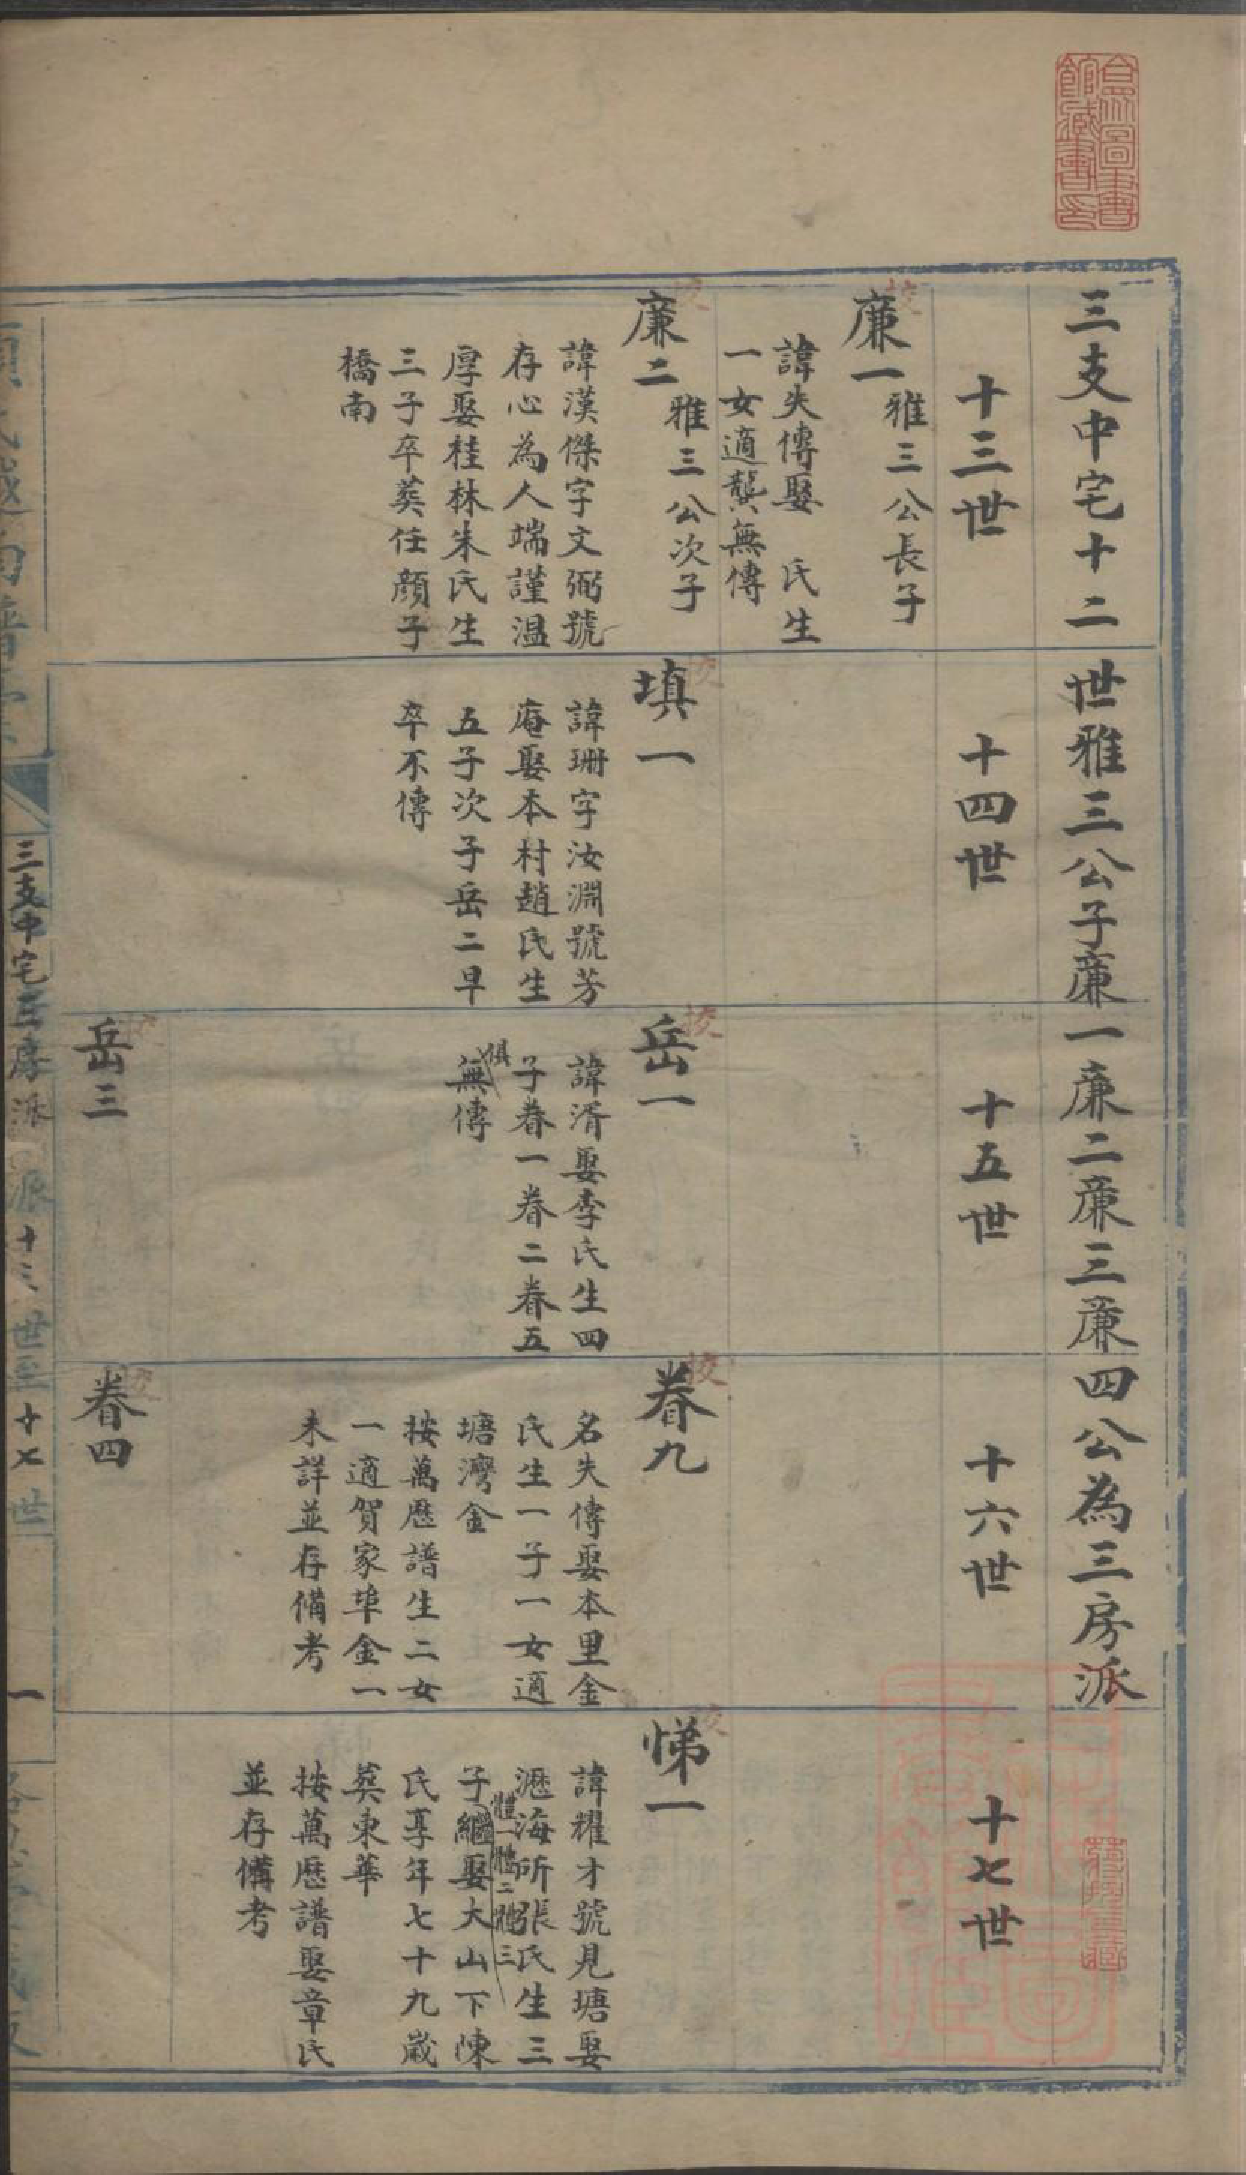 三支中宅十二世雅三公子廉一廉二廉三廉四公為三房派
十三世
十四世
十五世
十六世
十七世
廉一
雅三公長子
諱失傳娶 氏生
一女適龔無傳
廉二
雅三公次子
諱漢傑字文弼號
存心為人端謹溫
厚娶桂林朱氏生
三子卒葬任顔子
橋南
填一
諱珊字汝淵號芳
庵娶本村趙氏生
五子次子岳二早
卒不傳
岳一
諱湑娶李氏生四
子眷一眷二眷五
俱
無傳
岳三
眷九
名失傳娶本里金
氏生一子一女適
塘灣金
按萬歷譜生二女
一適賀家埠金一
未詳並存備考
眷四
悌一
諱耀才號見塘娶
瀝海所張氏生三
體一體二體三
子繼娶大山下陳
氏享年七十九歲
葬東華
按萬歷譜娶章氏
並存備考
三支中宅三房派 派十三世至十七世
一